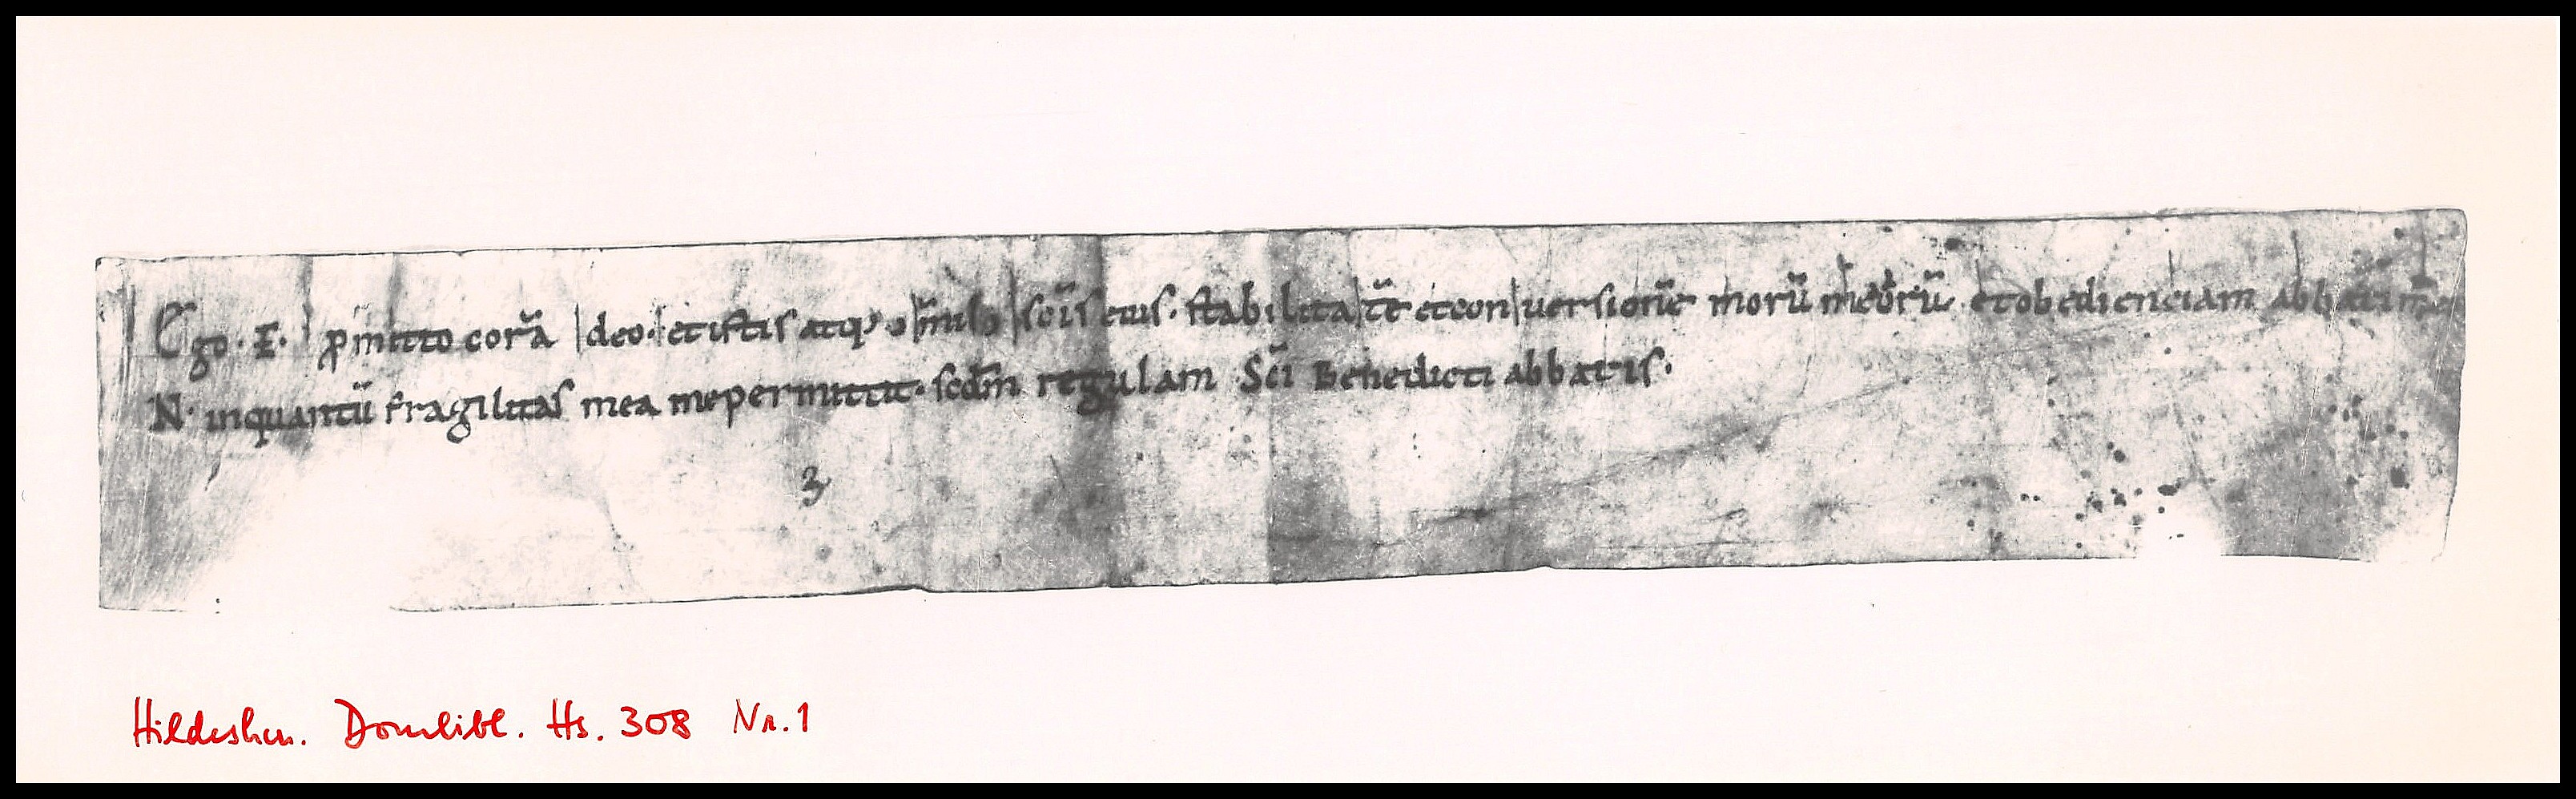 Ego · E · ꝓmitto corā deo · et istis atq; om̄ib; sc̄is eius · stabilitatē et conversionē morū meorū et obedienciam abbati meo
N · inquantū fragilitas mea me permittit · scdm̄ regulam Sc̄i Benedicti abbatis ·
3
Hildeshm. Dombibl. Hs. 308 Nr. 1